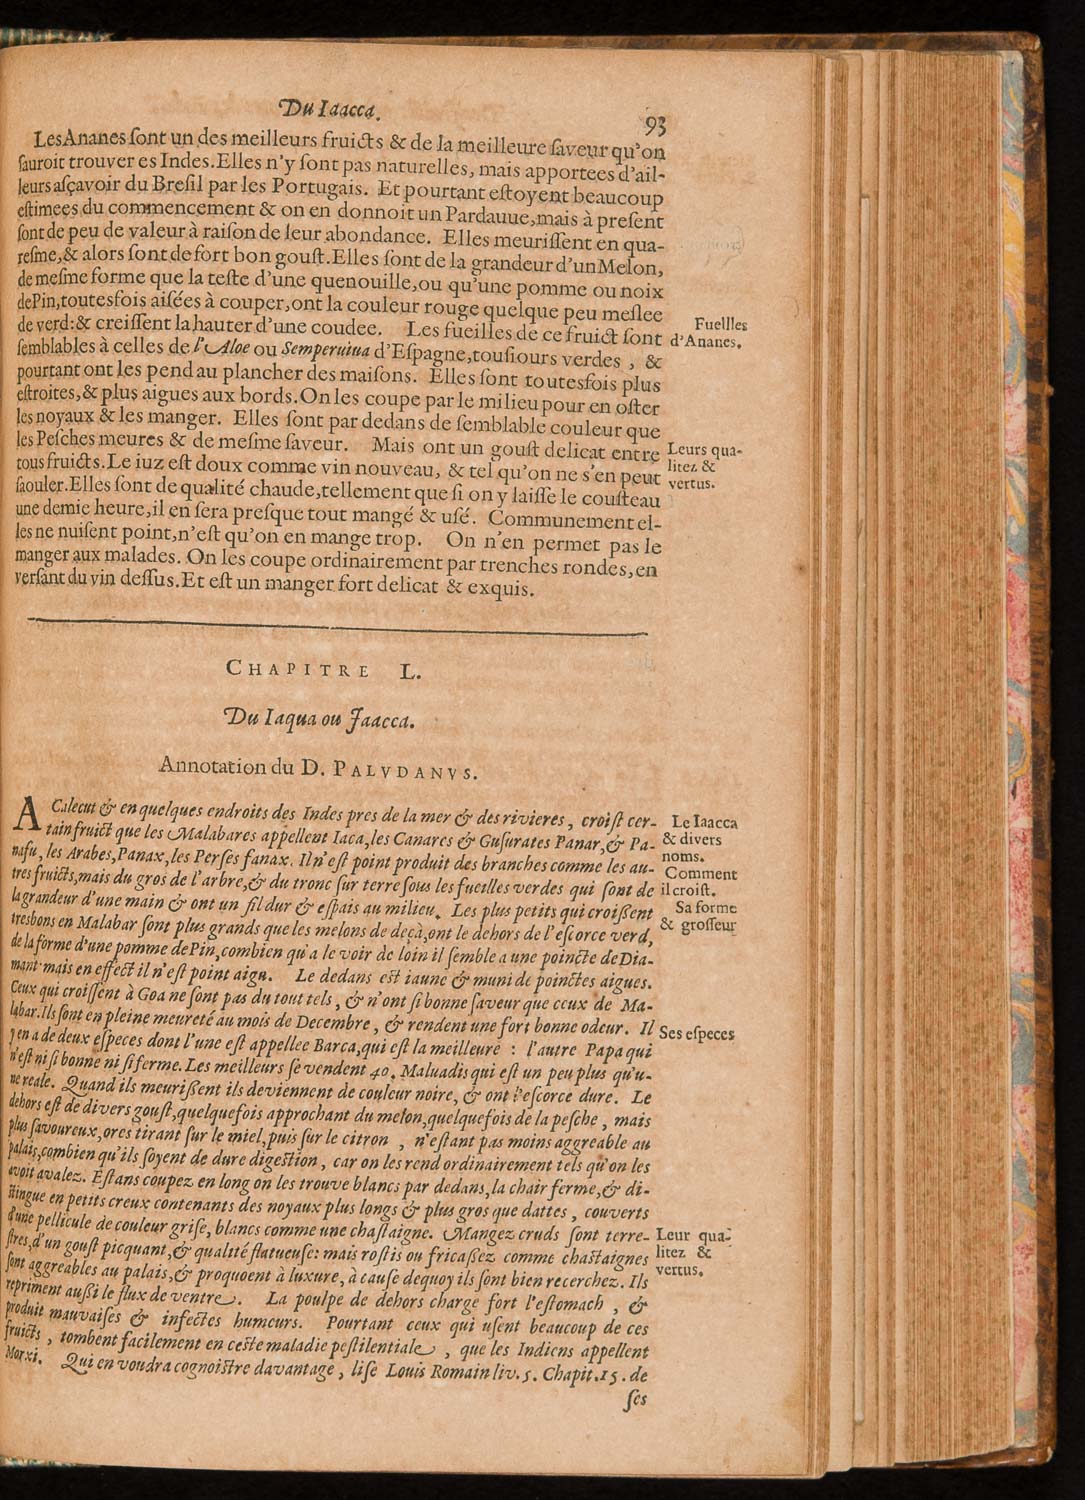 Du Iaacca.
93
Les Ananes ſont un des meilleurs fruicts & de la meilleure ſaveur qu'on
ſauroit trouver es Indes. Elles n'y ſont pas naturelles, mais apportees d'ail-
leurs aſçavoir du Breſil par les Portugais. Et pourtant eſtoyent beaucoup
eſtimees du commencement & on en donnoit un Pardauue, mais à preſent
ſont de peu de valeur à raiſon de leur abondance. Elles meuriſſent en qua-
reſme, & alors ſont de fort bon gouſt. Elles ſont de la grandeur d'un Melon,
de meſme forme que la teſte d'une quenouille, ou qu'une pomme ou noix
de Pin, toutesfois aiſées à couper, ont la couleur rouge quelque peu meſlee
de verd: & creiſſent la hauter d'une coudee. Les fueilles de ce fruict ſont
Fuellles
d'Ananes.
ſemblables à celles de l'Aloe ou Semperuiua d'Eſpagne, touſiours verdes, &
pourtant ont les pend au plancher des maiſons. Elles ſont toutesfois plus
eſtroites, & plus aigues aux bords. On les coupe par le milieu pour en oſter
les noyaux & les manger. Elles ſont par dedans de ſemblable couleur que
les Peſches meures & de meſme ſaveur. Mais ont un gouſt delicat entre
Leurs qua-
litez &
vertus.
tous fruicts. Le iuz eſt doux comme vin nouveau, & tel qu'on ne s'en peut
ſaouler. Elles ſont de qualité chaude, tellement que ſi on y laiſſe le couſteau
une demie heure, il en ſera preſque tout mangé & uſé. Communement el-
les ne nuiſent point, n'eſt qu'on en mange trop. On n'en permet pas le
manger aux malades. On les coupe ordinairement par trenches rondes, en
verſant du vin deſſus. Et eſt un manger fort delicat & exquis.
CHAPITRE L.
Du Iaqua ou Jaacca.
Annotation du D. PALVDANVS.
A Calecut & en quelques endroits des Indes pres de la mer & des rivieres, croiſt cer-
tain fruict que les Malabares appellent Iaca, les Canares & Guſurates Panar, & Pa-
Le Iaacca
& divers
noms.
naſu, les Arabes, Panax, les Perſes fanax. Il n'eſt point produit des branches comme les au-
tres fruicts, mais du gros de l'arbre, & du tronc ſur terre ſous les fueilles verdes qui ſont de
Comment
il croiſt.
la grandeur d'une main & ont un fil dur & eſpais au milieu. Les plus petits qui croiſſent
Sa forme
& groſſeur
tresbons en Malabar ſont plus grands que les melons de deçà, ont le dehors de l'eſcorce verd,
de la forme d'une pomme de Pin, combien qu'a le voir de loin il ſemble a une poincte de Dia-
mant mais en effect il n'eſt point aigu. Le dedans est iaune & muni de poinctes aigues.
Ceux qui croiſſent à Goa ne ſont pas du tout tels, & n'ont ſi bonne ſaveur que ceux de Ma-
labar. Ils ſont en pleine meureté au mois de Decembre, & rendent une fort bonne odeur. Il
Ses eſpeces
y en a de deux eſpeces dont l'une eſt appellee Barca, qui eſt la meilleure : l'autre Papa qui
n'eſt ni ſi bonne ni ſi ferme. Les meilleurs ſe vendent 40. Maluadis qui eſt un peu plus qu'u-
ne reale. Quand ils meuriſſent ils deviennent de couleur noire, & ont l'eſcorce dure. Le
dehors eſt de divers gouſt, quelquefois approchant du melon, quelquefois de la peſche, mais
plus ſavoureux, ores tirant ſur le miel, puis ſur le citron, n'eſtant pas moins aggreable au
palais, combien qu'ils ſoyent de dure digeſtion, car on les rend ordinairement tels qu'on les
avoit avalez. Eſtans coupez en long on les trouve blancs par dedans, la chair ferme, & di-
ſtingue en petits creux contenants des noyaux plus longs & plus gros que dattes, couverts
d'une pellicule de couleur griſe, blancs comme une chaſtaigne. Mangez cruds ſont terre-
Leur qua-
litez &
vertus.
ſtres, d'un gouſt picquant, & qualité flatueuſe: mais roſtis ou fricaſſez comme chaſtaignes
ſont aggreables au palais, & proquoent à luxure, à cauſe dequoy ils ſont bien recerchez. Ils
repriment auſſi le flux de ventre. La poulpe de dehors charge fort l'eſtomach, &
produit mauvaiſes & infectes humeurs. Pourtant ceux qui uſent beaucoup de ces
fruicts, tombent facilement en ceſte maladie peſtilentiale, que les Indiens appellent
Morxi. Qui en voudra cognoiſtre davantage, liſe Louis Romain liv. 5. Chapit. 15. de
ſes